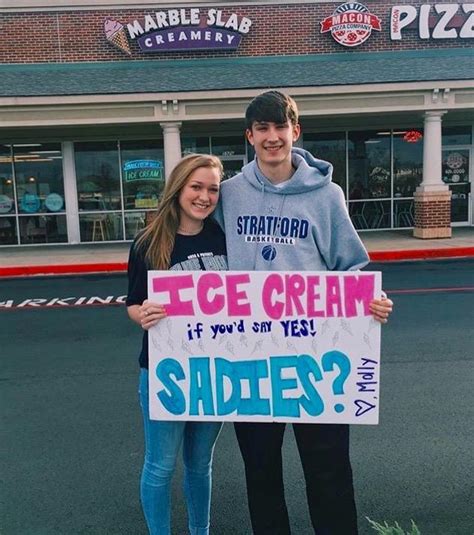 MARBLE SLAB
CREAMERY
MACON
PIZZA COMPANY
MACON PIZZ
ICE CREAM
STRATFORD
BASKETBALL
ICE CREAM
if you'd SAY YES!
SADIES?
♡, Molly
PARKING